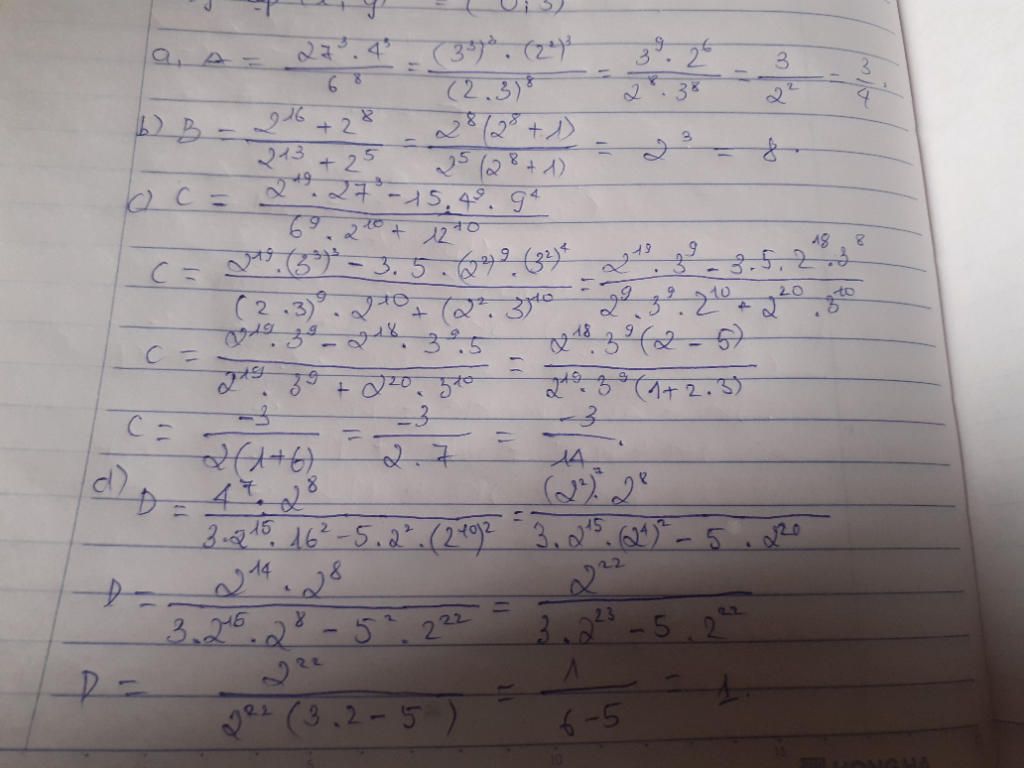 a, A = \frac{27^3 \cdot 4^3}{6^8} = \frac{(3^3)^3 \cdot (2^2)^3}{(2.3)^8} = \frac{3^9 \cdot 2^6}{2^8 \cdot 3^8} = \frac{3}{2^2} = \frac{3}{4}.
b) B = \frac{2^{16} + 2^8}{2^{13} + 2^5} = \frac{2^8(2^8+1)}{2^5(2^8+1)} = 2^3 = 8.
c) C = \frac{2^{19} \cdot 27^3 - 15.4^9 \cdot 9^4}{6^9 \cdot 2^{10} + 12^{10}}
C = \frac{2^{19} \cdot (3^3)^3 - 3.5 \cdot (2^2)^9 \cdot (3^2)^4}{(2.3)^9 \cdot 2^{10} + (2^2 \cdot 3)^{10}} = \frac{2^{19} \cdot 3^9 - 3.5.2^{18} \cdot 3^8}{2^9 \cdot 3^9 \cdot 2^{10} + 2^{20} \cdot 3^{10}}
C = \frac{2^{19} \cdot 3^9 - 2^{18} \cdot 3^9 \cdot 5}{2^{19} \cdot 3^9 + 2^{20} \cdot 3^{10}} = \frac{2^{18} \cdot 3^9(2-5)}{2^{19} \cdot 3^9(1+2.3)}
C = \frac{-3}{2(1+6)} = \frac{-3}{2.7} = \frac{-3}{14}.
d) D = \frac{4^7 \cdot 2^8}{3.2^{15} \cdot 16^2 - 5.2^2 \cdot (2^{10})^2} = \frac{(2^2)^7 \cdot 2^8}{3.2^{15} \cdot (2^4)^2 - 5 \cdot 2^{20}}
D = \frac{2^{14} \cdot 2^8}{3.2^{15} \cdot 2^8 - 5^2 \cdot 2^{22}} = \frac{2^{22}}{3.2^{23} - 5.2^{22}}
D = \frac{2^{22}}{2^{22}(3.2-5)} = \frac{1}{6-5} = 1.